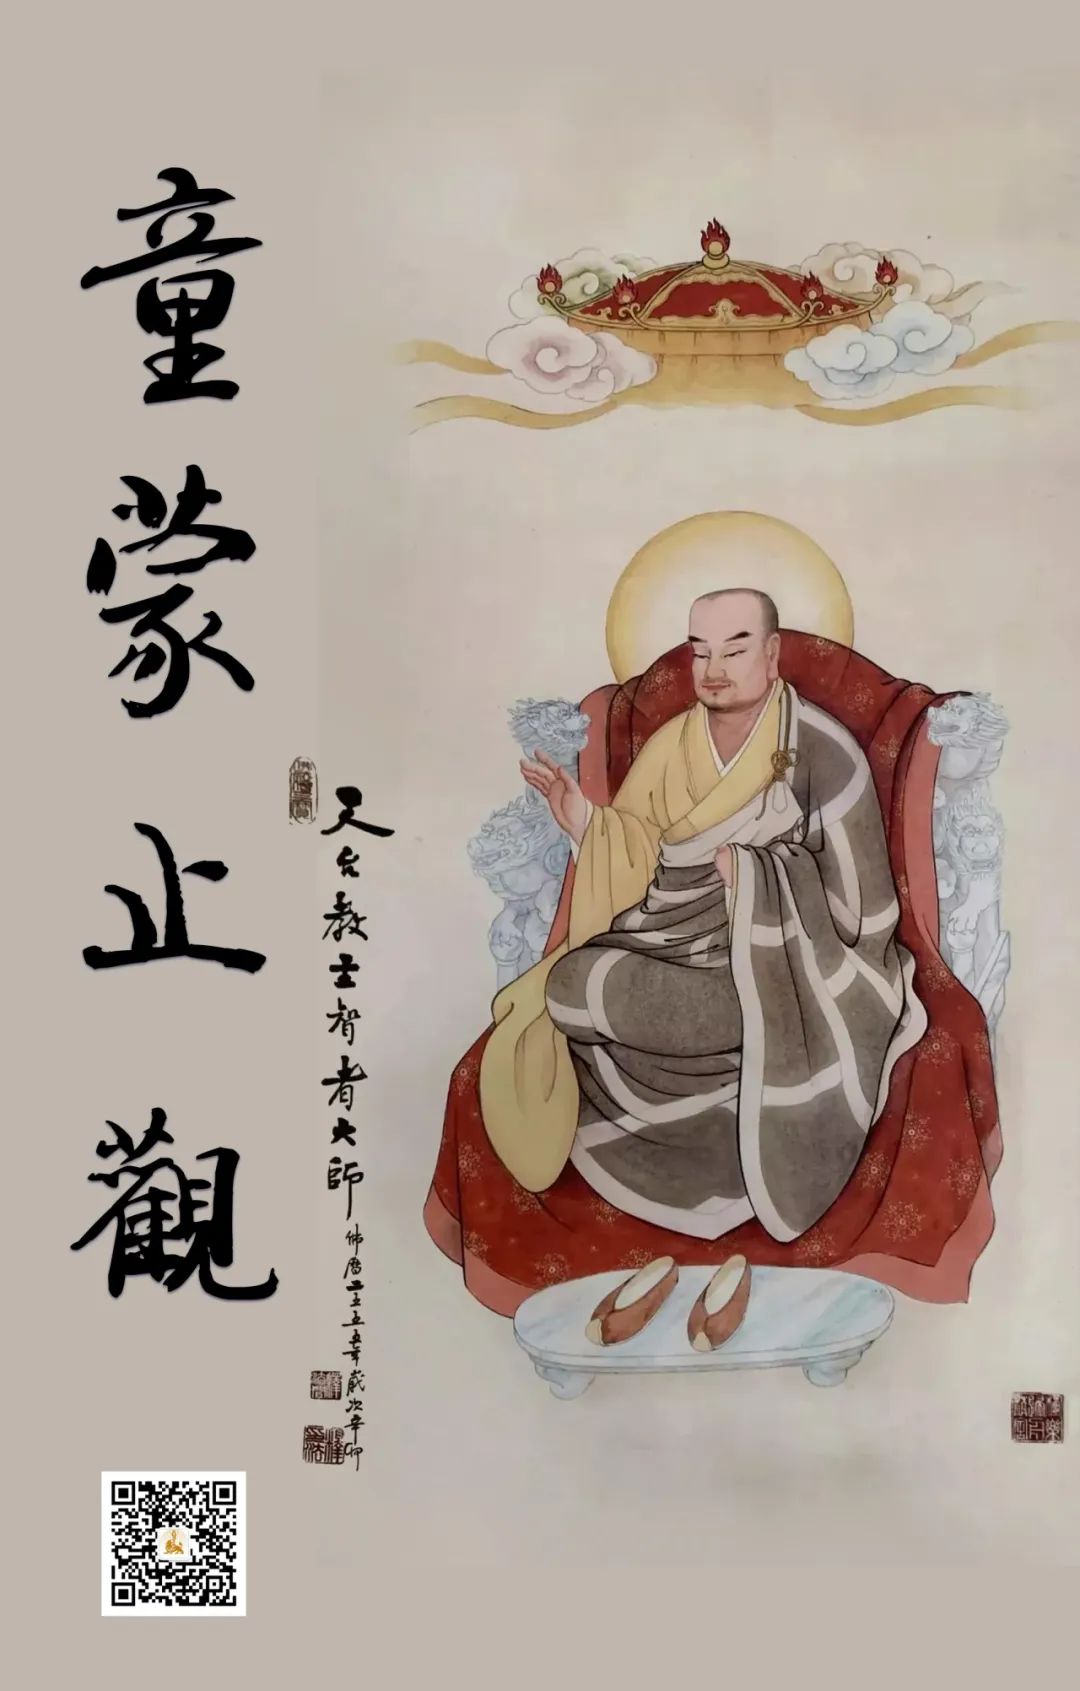 童蒙止觀
天台教主智者大師
佛曆二五五五年歲次辛卯